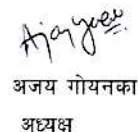 Ajay Goen
अजय गोयनका
अध्यक्ष